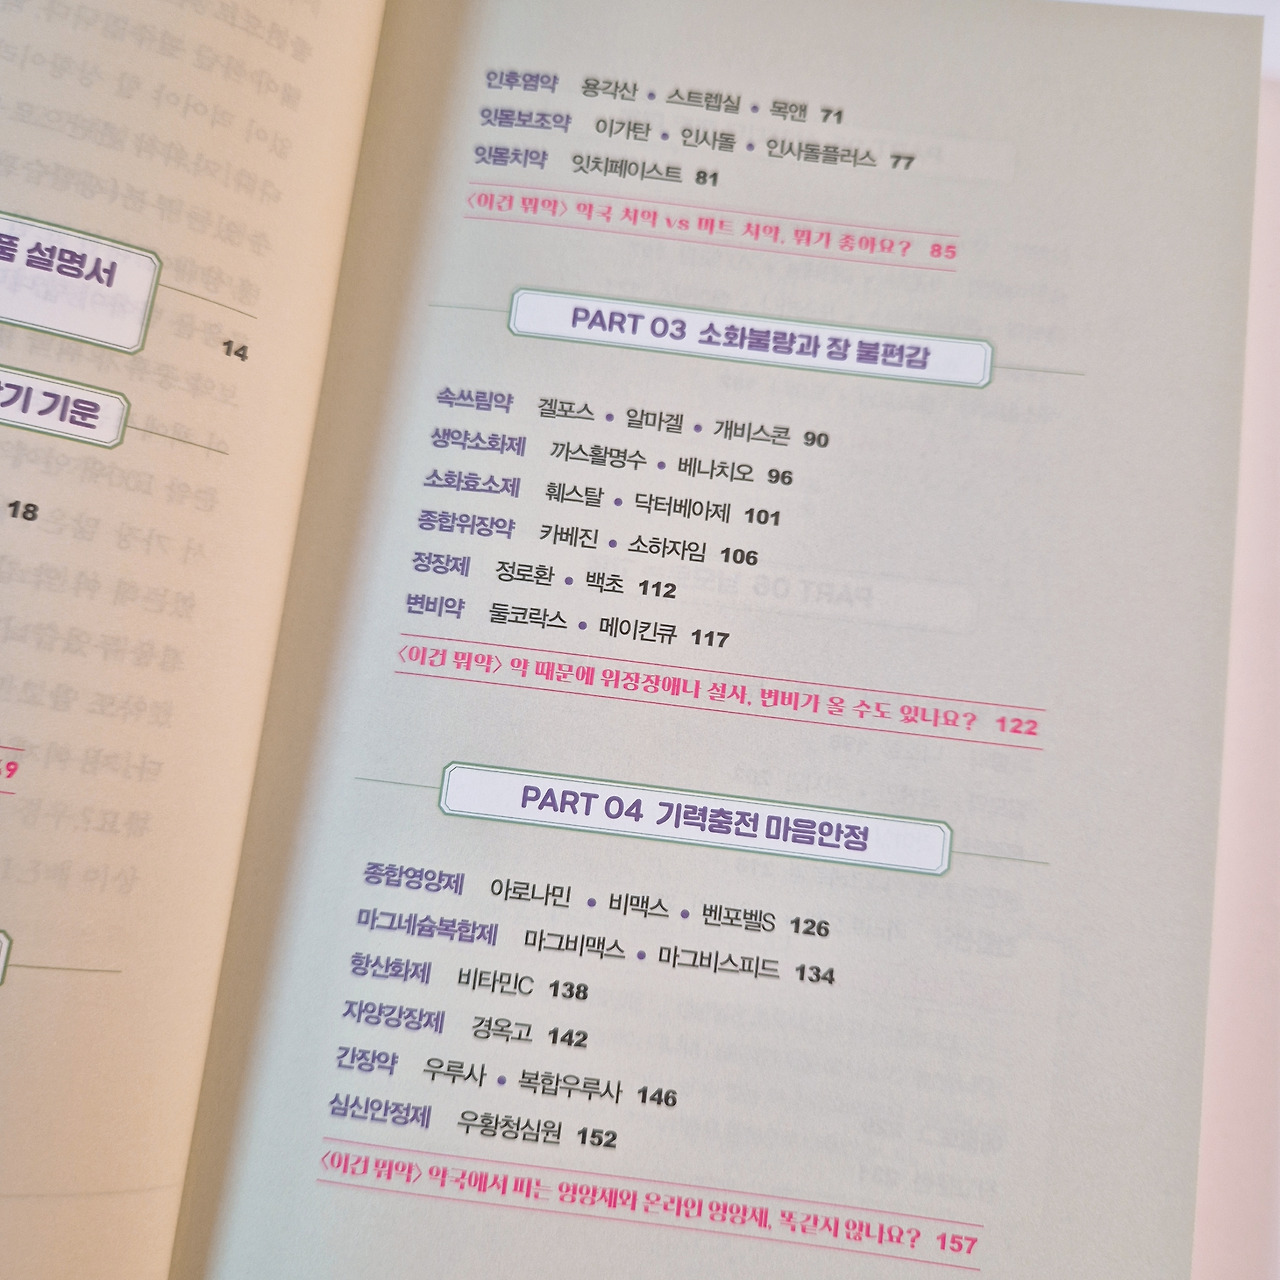 품 설명서
14
기 기운
18
인후염약 용각산 • 스트렙실 • 목앤 71
잇몸보조약 이가탄 • 인사돌 • 인사돌플러스 77
잇몸치약 잇치페이스트 81
〈이건 뭐약〉 약국 치약 vs 마트 치약, 뭐가 좋아요? 85
PART 03 소화불량과 장 불편감
속쓰림약 겔포스 • 알마겔 • 개비스콘 90
생약소화제 까스활명수 • 베나치오 96
소화효소제 훼스탈 • 닥터베아제 101
종합위장약 카베진 • 소하자임 106
정장제 정로환 • 백초 112
변비약 둘코락스 • 메이킨큐 117
〈이건 뭐약〉 약 때문에 위장장애나 설사, 변비가 올 수도 있나요? 122
PART 04 기력충전 마음안정
종합영양제 아로나민 • 비맥스 • 벤포벨S 126
마그네슘복합제 마그비맥스 • 마그비스피드 134
항산화제 비타민C 138
자양강장제 경옥고 142
간장약 우루사 • 복합우루사 146
심신안정제 우황청심원 152
〈이건 뭐약〉 약국에서 파는 영양제와 온라인 영양제, 똑같지 않나요? 157